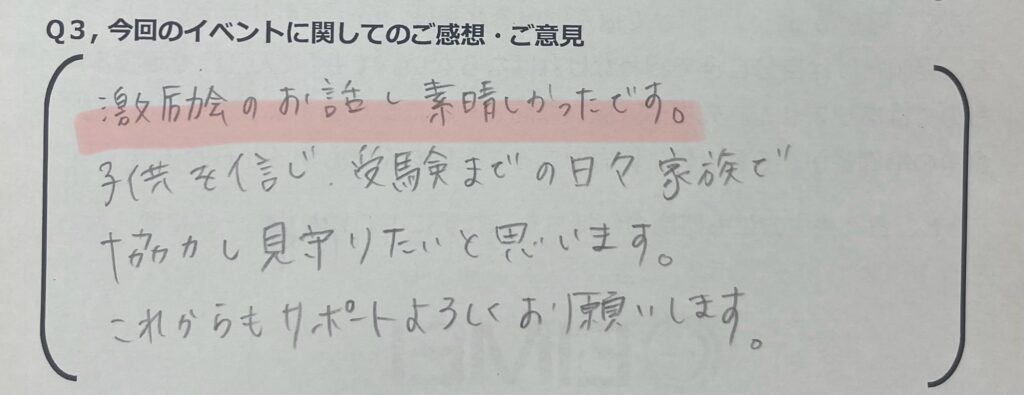 Q３, 今回のイベントに関してのご感想・ご意見
激励会のお話し素晴しかったです。
子供を信じ、受験までの日々家族で
協力し見守りたいと思います。
これからもサポートよろしくお願いします。